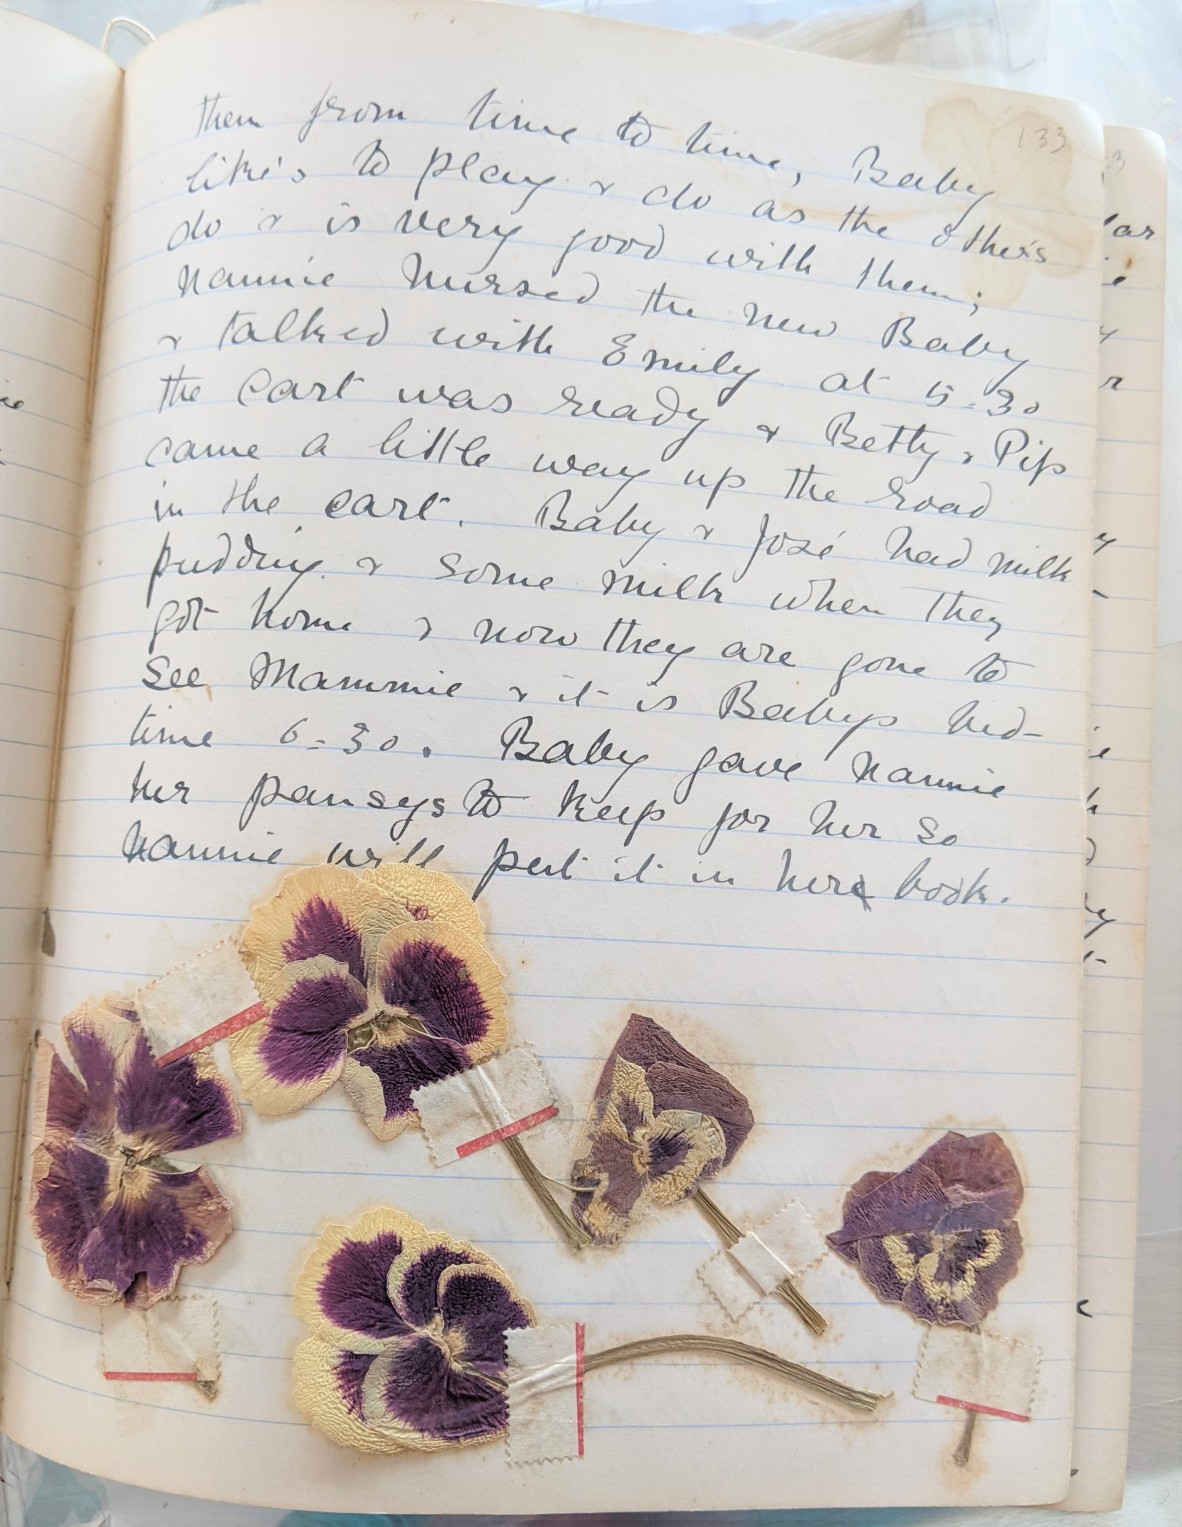 133
them from time to time, Baby
like's to play & do as the other's
do & is very good with them;
Nannie Nursed the new Baby
& talked with Emily at 5-30
the cart was ready & Betty & Pip
came a little way up the road
in the cart. Baby & José had milk
pudding & some milk when they
got home & now they are gone to
see Mammie & it is Babys bed-
time 6-30. Baby gave Nannie
her pansys to keep for her so
Nannie will put it in here book.